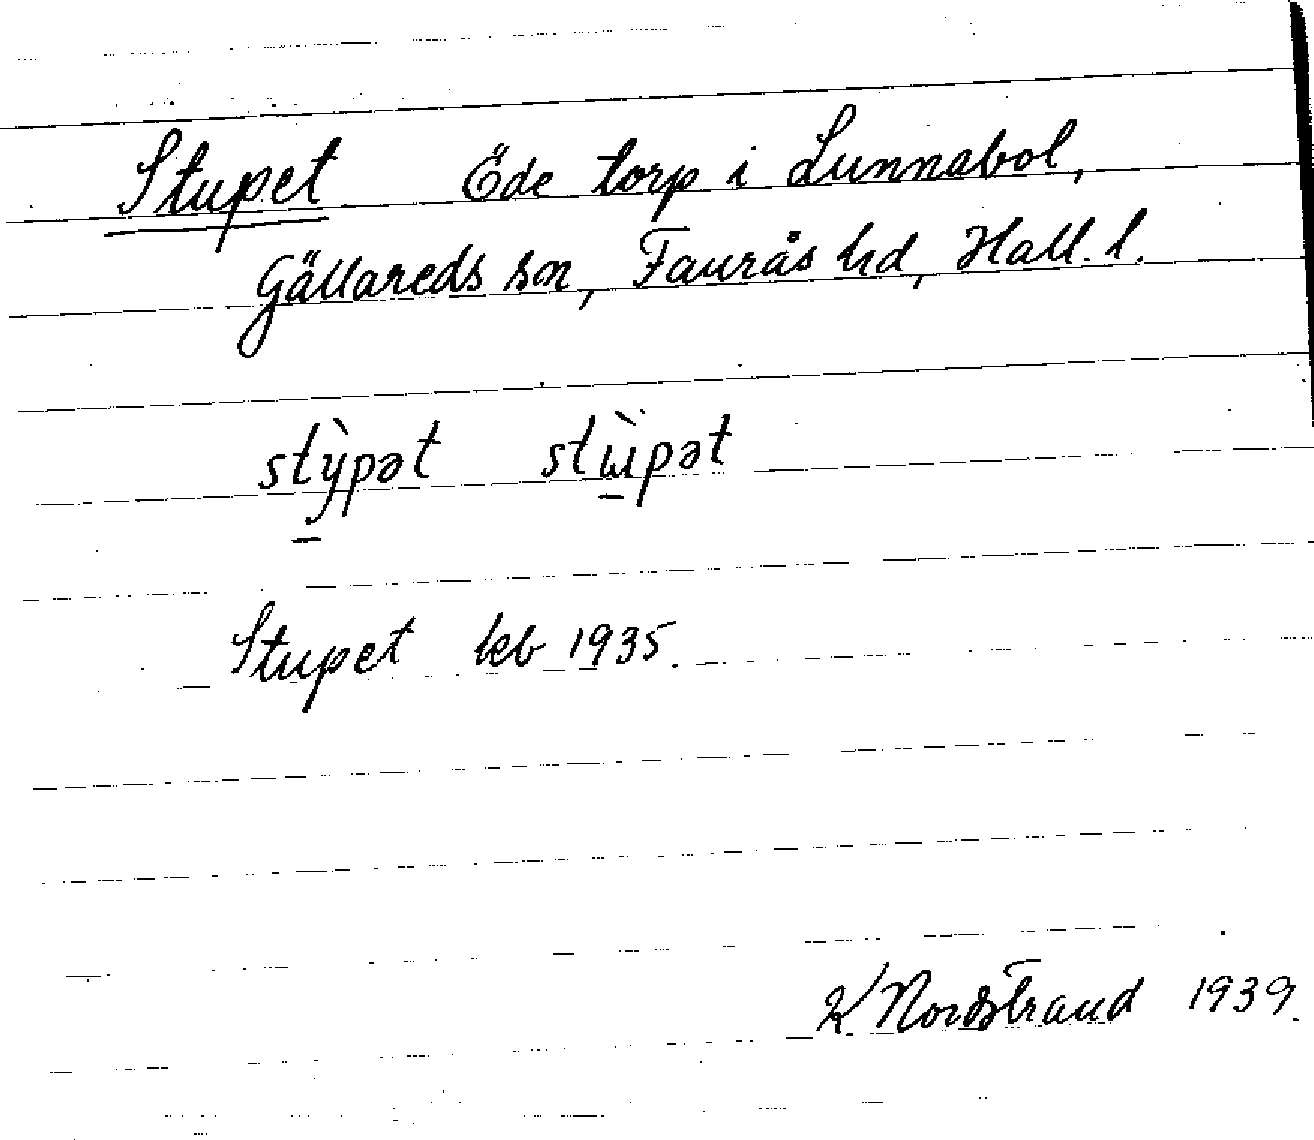 Stupet Öde torp i Lunnabol,
Gällareds sn, Faurås hd, Hall. l.
stỳ̱pət stɯ̱̀pət
Stupet kb 1935.
K. Nordstrand 1939.